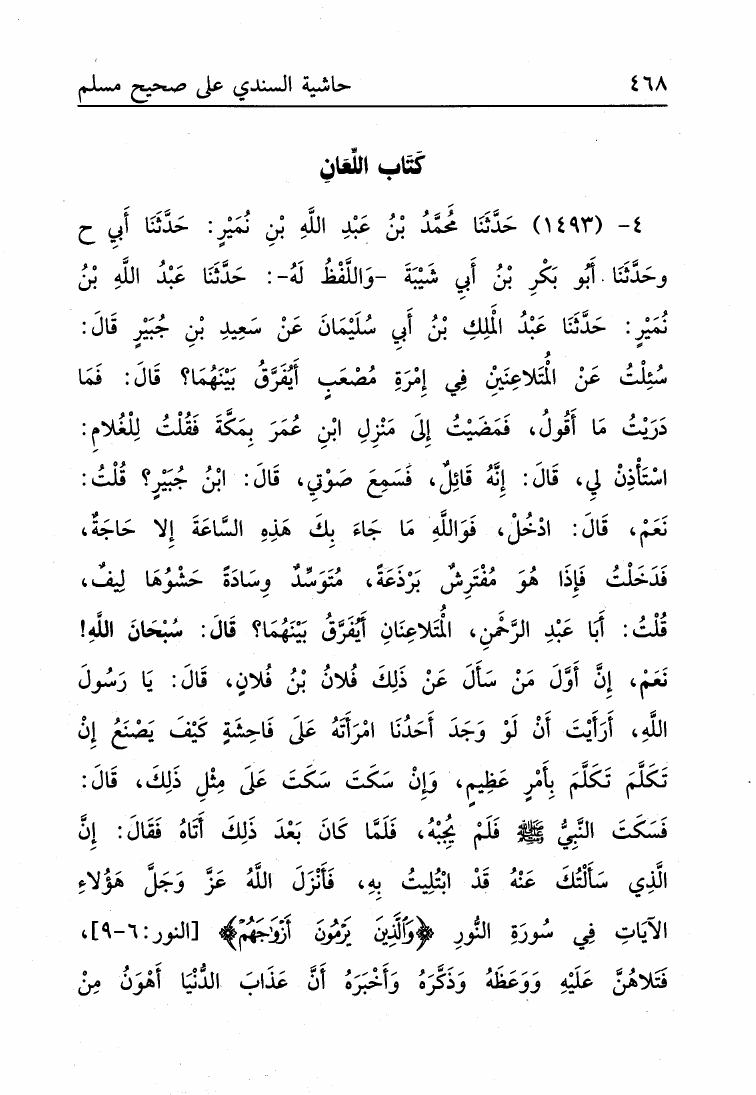 ٤٦٨ حاشية السندي على صحيح مسلم
كَتَاب اللِّعَانِ
٤- (١٤٩٣) حَدَّثَنَا مُحَمَّدُ بْنُ عَبْدِ اللَّهِ بْنِ نُمَيْرٍ: حَدَّثَنَا أَبِي ح
وحَدَّثَنَا أَبُو بَكْرِ بْنُ أَبِي شَيْبَةَ -وَاللَّفْظُ لَهُ-: حَدَّثَنَا عَبْدُ اللَّهِ بْنُ
نُمَيْرٍ: حَدَّثَنَا عَبْدُ الْمَلِكِ بْنُ أَبِي سُلَيْمَانَ عَنْ سَعِيدِ بْنِ جُبَيْرٍ قَالَ:
سُئِلْتُ عَنْ الْمُتَلاعِنَيْنِ فِي إِمْرَةِ مُصْعَبٍ أَيُفَرَّقُ بَيْنَهُمَا؟ قَالَ: فَمَا
دَرَيْتُ مَا أَقُولُ، فَمَضَيْتُ إِلَى مَنْزِلِ ابْنِ عُمَرَ بِمَكَّةَ فَقُلْتُ لِلْغُلامِ:
اسْتَأْذِنْ لِي، قَالَ: إِنَّهُ قَائِلٌ، فَسَمِعَ صَوْتِي، قَالَ: ابْنُ جُبَيْرٍ؟ قُلْتُ:
نَعَمْ، قَالَ: ادْخُلْ، فَوَاللَّهِ مَا جَاءَ بِكَ هَذِهِ السَّاعَةَ إِلا حَاجَةٌ،
فَدَخَلْتُ فَإِذَا هُوَ مُفْتَرِشٌ بَرْذَعَةً، مُتَوَسِّدٌ وِسَادَةً حَشْوُهَا لِيفٌ،
قُلْتُ: أَبَا عَبْدِ الرَّحْمَنِ، الْمُتَلاعِنَانِ أَيُفَرَّقُ بَيْنَهُمَا؟ قَالَ: سُبْحَانَ اللَّهِ!
نَعَمْ، إِنَّ أَوَّلَ مَنْ سَأَلَ عَنْ ذَلِكَ فُلانُ بْنُ فُلانٍ، قَالَ: يَا رَسُولَ
اللَّهِ، أَرَأَيْتَ أَنْ لَوْ وَجَدَ أَحَدُنَا امْرَأَتَهُ عَلَى فَاحِشَةٍ كَيْفَ يَصْنَعُ إِنْ
تَكَلَّمَ تَكَلَّمَ بِأَمْرٍ عَظِيمٍ، وَإِنْ سَكَتَ سَكَتَ عَلَى مِثْلِ ذَلِكَ، قَالَ:
فَسَكَتَ النَّبِيُّ ﷺ فَلَمْ يُجِبْهُ، فَلَمَّا كَانَ بَعْدَ ذَلِكَ أَتَاهُ فَقَالَ: إِنَّ
الَّذِي سَأَلْتُكَ عَنْهُ قَدْ ابْتُلِيتُ بِهِ، فَأَنْزَلَ اللَّهُ عَزَّ وَجَلَّ هَؤُلاءِ
الآيَاتِ فِي سُورَةِ النُّورِ ﴿وَالَّذِينَ يَرْمُونَ أَزْوَٰجَهُمْ﴾ [النور: ٦-٩]،
فَتَلاهُنَّ عَلَيْهِ وَوَعَظَهُ وَذَكَّرَهُ وَأَخْبَرَهُ أَنَّ عَذَابَ الدُّنْيَا أَهْوَنُ مِنْ